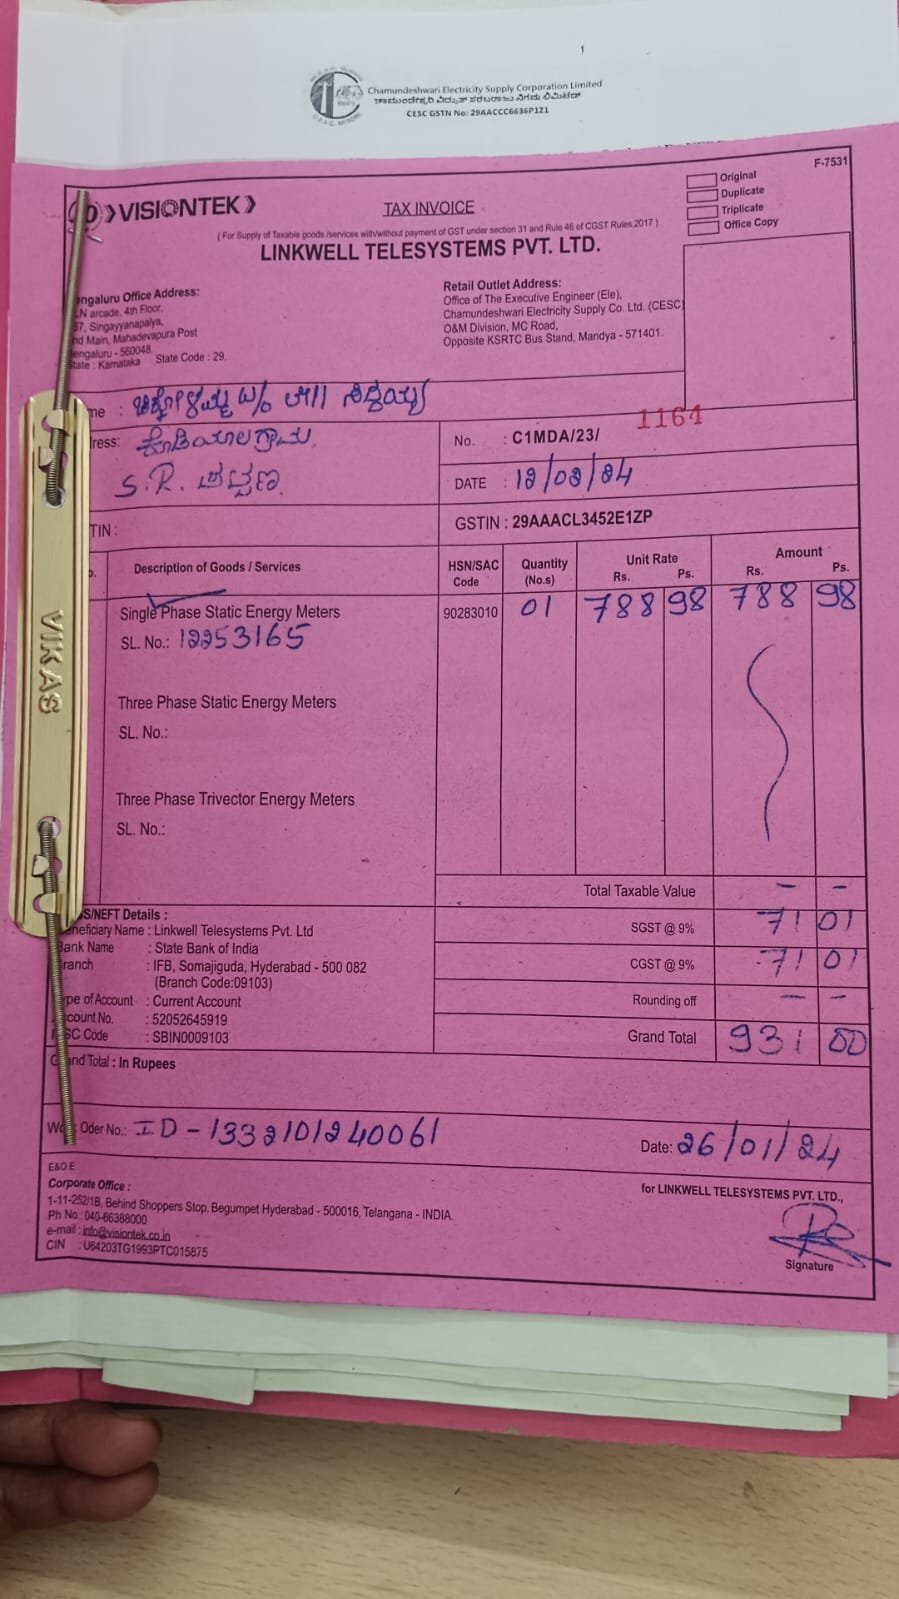 1
Chamundeshwari Electricity Supply Corporation Limited
ಚಾಮುಂಡೇಶ್ವರಿ ವಿದ್ಯುತ್ ಸರಬರಾಜು ನಿಗಮ ಲಿಮಿಟೆಡ್
CESC GSTN No: 29AACCC6636P1Z1
F-7531
VISIONTEK
TAX INVOICE
Original
Duplicate
Triplicate
Office Copy
( For Supply of Taxable goods /services with/without payment of GST under section 31 and Rule 46 of CGST Rules,2017 )
LINKWELL TELESYSTEMS PVT. LTD.
ngaluru Office Address:
N arcade, 4th Floor,
37, Singayyanapalya,
nd Main, Mahadevapura Post
engaluru - 560048.
State : Karnataka State Code : 29.
Retail Outlet Address:
Office of The Executive Engineer (Ele),
Chamundeshwari Electricity Supply Co. Ltd. (CESC)
O&M Division, MC Road,
Opposite KSRTC Bus Stand, Mandya - 571401.
me :
ress: ಕೊಡಿಯಾಲ ಗ್ರಾಮ,
S.R. ಪಟ್ಟಣ.
No. : C1MDA/23/ 1164
DATE : 12/02/24
TIN :
GSTIN : 29AAACL3452E1ZP
Description of Goods / Services
HSN/SAC Code
Quantity (No.s)
Unit Rate Rs. Ps.
Amount Rs. Ps.
Single Phase Static Energy Meters 90283010 01 788 98 788 98
SL. No.: 12253165
Three Phase Static Energy Meters
SL. No.:
Three Phase Trivector Energy Meters
SL. No.:
Total Taxable Value - -
S/NEFT Details :
eneficiary Name : Linkwell Telesystems Pvt. Ltd
Bank Name : State Bank of India
ranch : IFB, Somajiguda, Hyderabad - 500 082
(Branch Code:09103)
ype of Account : Current Account
ccount No. : 52052645919
SC Code : SBIN0009103
SGST @ 9% 71 01
CGST @ 9% 71 01
Rounding off - -
Grand Total 931 00
Grand Total : In Rupees
Wo Oder No.: ID-1332101240061
Date: 26/01/24
E&O E
Corporate Office :
1-11-252/1B, Behind Shoppers Stop, Begumpet Hyderabad - 500016, Telangana - INDIA.
Ph No.: 040-66388000
e-mail : info@visiontek.co.in
CIN : U64203TG1993PTC015875
for LINKWELL TELESYSTEMS PVT. LTD.,
Signature
VIKAS